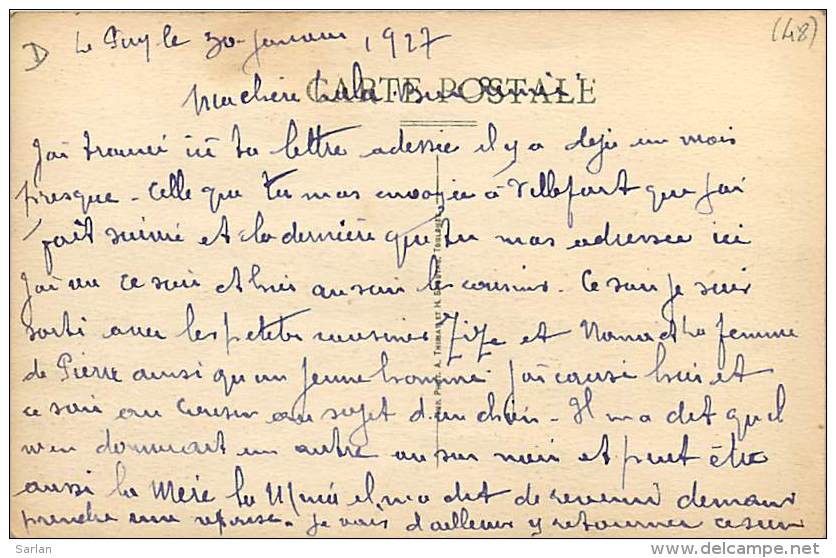 D
(48)
Le Puy le 30 Janvier 1927
CARTE POSTALE
Ma chère
J'ai trouvé ici ta lettre adessée il y a déjà un mois
presque - Celle que tu mas envoyée à Villefort que j'ai
fait suivre et la dernière que tu mas adressée ici
J'ai vu ce soir et hier au soir les cousins. Ce soir je suis
sorti avec les petites cousines Zize et Nana et la femme
de Pierre ainsi qu'un jeune homme J'ai causé hier et
ce soir au cousin au sujet d'un chien - Il m'a dit qu'il
m'en donnerait un autre et peut être
aussi la Mère la il m'a dit de revenir demain
prendre une réponse. Je vais d'ailleurs y retourner ce soir
PHOT. A. THIRIAT ET H. TOULOUSE
Sarlan
delcampe.net